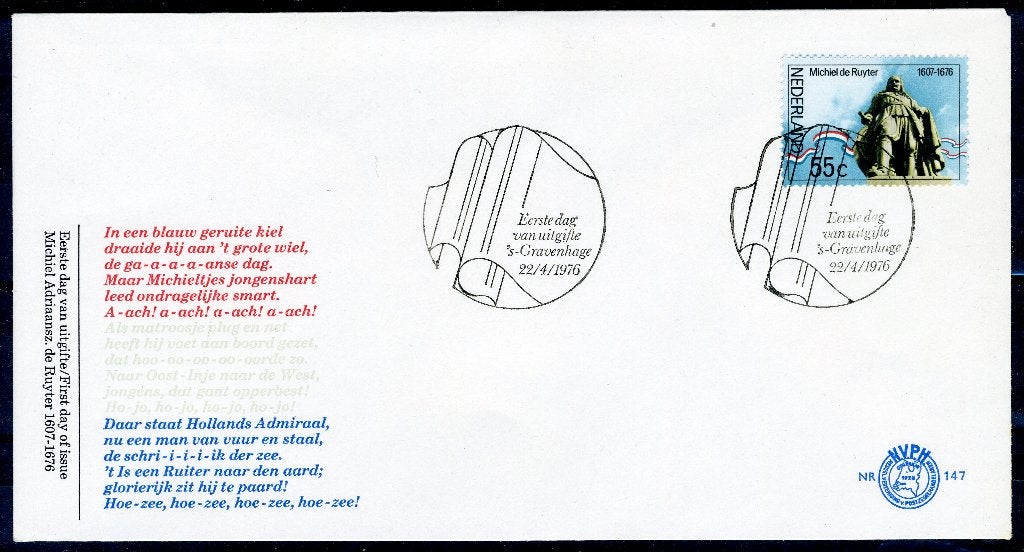 Michiel de Ruyter 1607-1676
NEDERLAND
55c
Eerste dag
van uitgifte
's-Gravenhage
22/4/1976
Eerste dag
van uitgifte
's-Gravenhage
22/4/1976
Eerste dag van uitgifte/First day of issue
Michiel Adriaansz. de Ruyter 1607-1676
In een blauw geruite kiel
draaide hij aan 't grote wiel,
de ga-a-a-a-anse dag.
Maar Michieltjes jongenshart
leed ondragelijke smart.
A-ach! a-ach! a-ach! a-ach!
Als matroosje plug en net
heeft hij voet aan boord gezet,
dat hoo-oo-oo-oo-oorde zo.
Naar Oost-Inje naar de West,
jongens, dat gaat opperbest!
Ho-jo, ho-jo, ho-jo, ho-jo!
Daar staat Hollands Admiraal,
nu een man van vuur en staal,
de schri-i-i-i-ik der zee.
't Is een Ruiter naar den aard;
glorierijk zit hij te paard!
Hoe-zee, hoe-zee, hoe-zee, hoe-zee!
N.V.P.H.
1928
NR 147